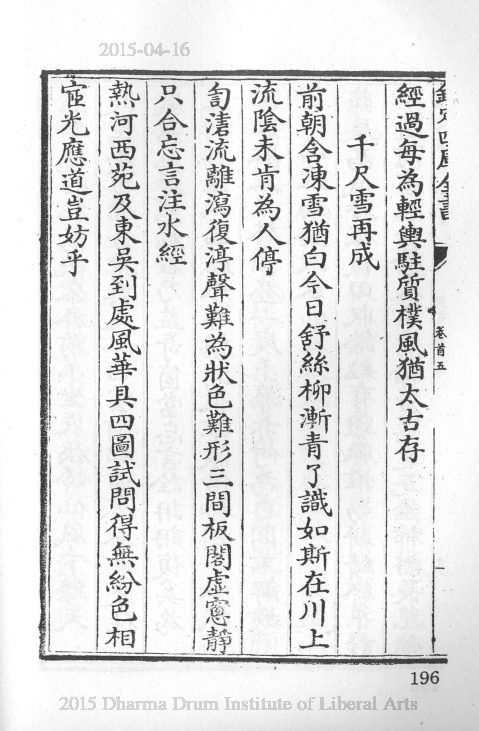 2015-04-16
欽定四庫全書
卷首五
經過每為輕輿駐質樸風猶太古存
千尺雪再成
前朝含凍雪猶白今日舒絲柳漸青了識如斯在川上
流陰未肯為人停
訇流離瀉復渟聲難為狀色難形三間板閣虛窻靜
只合忘言注水經
熱河西苑及東吳到處風華具四圖試問得無紛色相
宧光應道豈妨乎
196
2015 Dharma Drum Institute of Liberal Arts